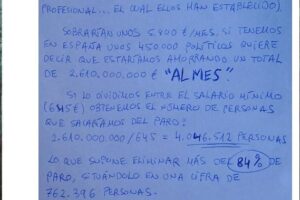 PROFESIONAL... EL CUAL ELLOS HAN ESTABLECIDO).
SOBRARÍAN UNOS 5.800 €/MES. SI TENEMOS
EN ESPAÑA UNOS 450.000 POLÍTICOS QUIERE
DECIR QUE ESTARÍAMOS AHORRANDO UN TOTAL
DE 2.610.000.000 € "AL MES"
SI LO DIVIDIMOS ENTRE EL SALARIO MÍNIMO
(645€) OBTENEMOS EL NÚMERO DE PERSONAS
QUE SACARÍAMOS DEL PARO:
2.610.000.000/645 = 4.046.512 PERSONAS
LO QUE SUPONE ELIMINAR MÁS DEL 84% DE
PARO, SITUÁNDOLO EN UNA CIFRA DE
762.396 PERSONAS.